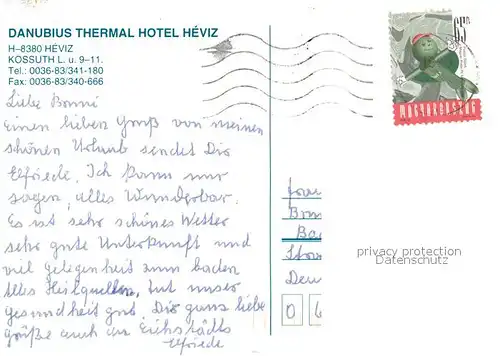 DANUBIUS THERMAL HOTEL HÉVIZ
H-8380 HÉVIZ
KOSSUTH L. u. 9-11.
Tel.: 0036-83/341-180
Fax: 0036-83/340-666
Liebe Bonni
Einen lieben Gruß von meinen
schönen Urlaub sendet Dir
Elfriede. Ich kann nur
sagen, alles Wunderbar.
Es ist sehr schönes Wetter
sehr gute Unterkunft und
viel gelegenheit zum baden
Alles Heilquellen, tut unser
gesundheit gut. Dir ganz liebe
grüße auch an Eichstädts
Elfriede
65
MAGYARORSZÁG
privacy protection
Datenschutz
0